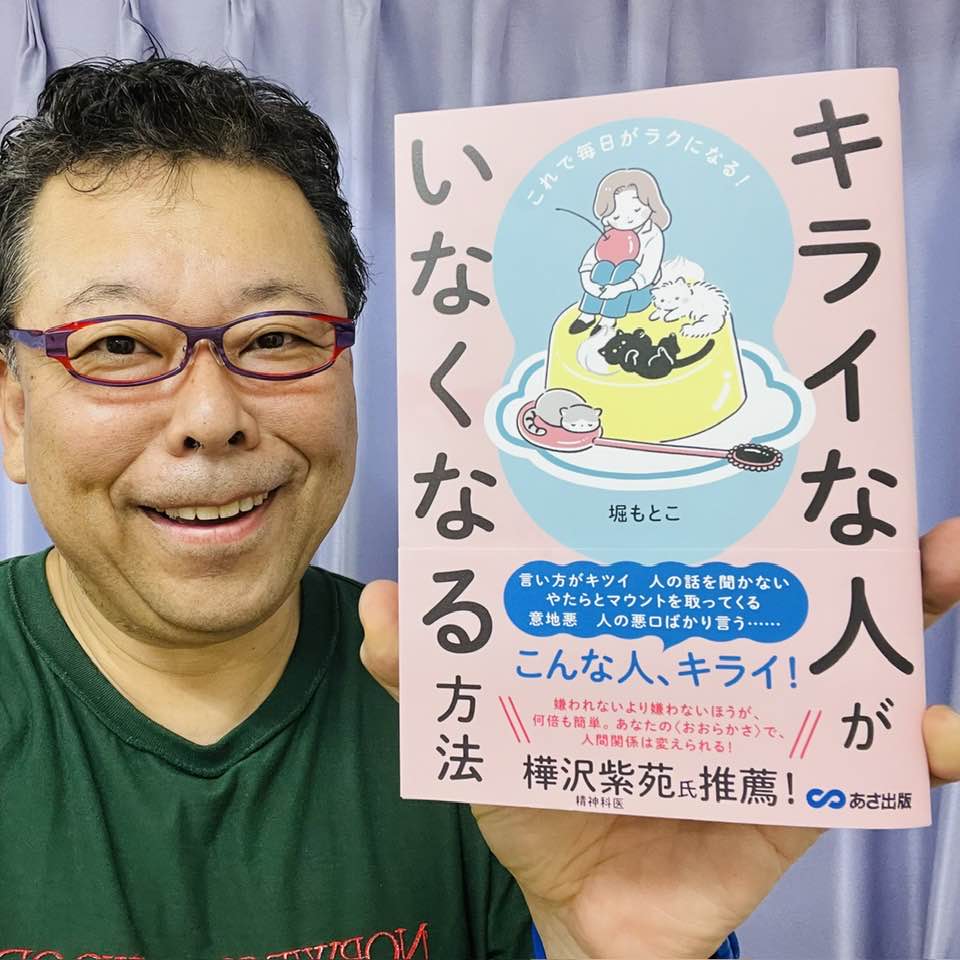 キライな人が
いなくなる方法
これで毎日がラクになる!
堀もとこ
言い方がキツイ 人の話を聞かない
やたらとマウントを取ってくる
意地悪 人の悪口ばかり言う……
こんな人、キライ!
嫌われないより嫌わないほうが、
何倍も簡単。あなたの〈おおらかさ〉で、
人間関係は変えられる!
樺沢紫苑氏推薦!
精神科医
あさ出版